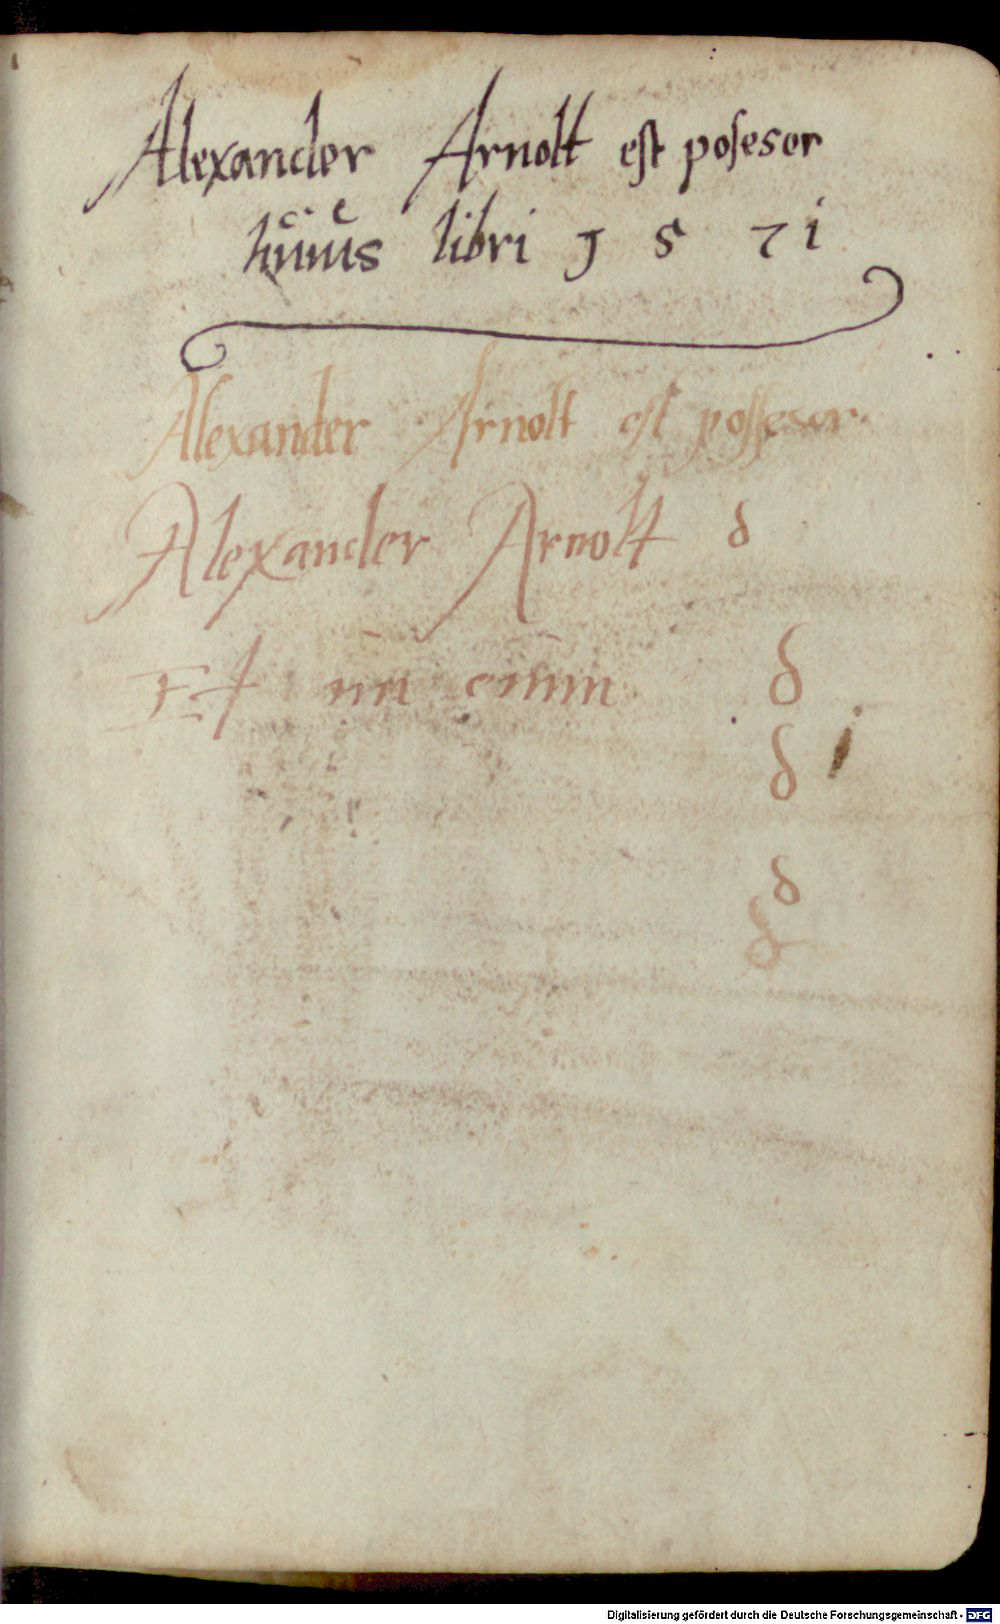 Alexander Arnolt est poſeser
huius libri 1 5 7 i
Alexander Arnolt est poſſeser
Alexander Arnolt d
Et d
d
d
d
Digitalisierung gefördert durch die Deutsche Forschungsgemeinschaft - DFG